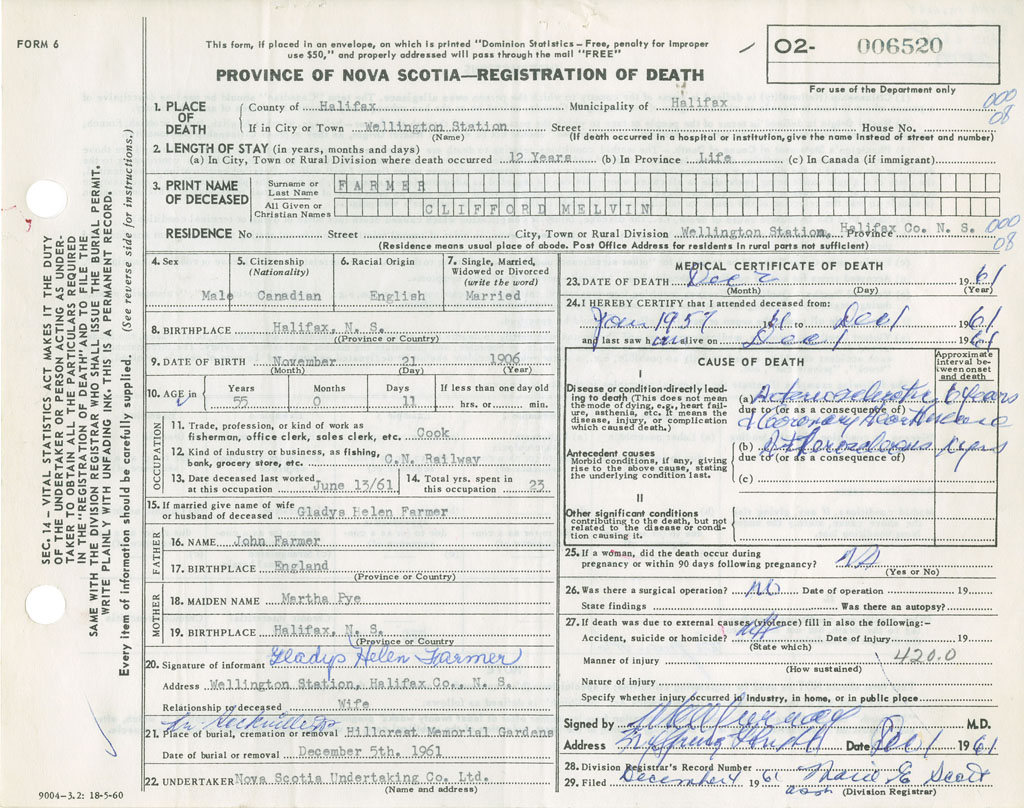 FORM 6
This form, if placed in an envelope, on which is printed "Dominion Statistics – Free, penalty for improper
use $50," and properly addressed will pass through the mail "FREE"
PROVINCE OF NOVA SCOTIA—REGISTRATION OF DEATH
02- 006520
For use of the Department only
000
08
1. PLACE OF DEATH
County of Halifax Municipality of Halifax
If in City or Town Wellington Station Street House No.
(Name) (If death occurred in a hospital or institution, give the name instead of street and number)
2. LENGTH OF STAY (in years, months and days)
(a) In City, Town or Rural Division where death occurred 12 Years (b) In Province Life (c) In Canada (if immigrant)
3. PRINT NAME OF DECEASED
Surname or Last Name FARMER
All Given or Christian Names CLIFFORD MELVIN
RESIDENCE No Street City, Town or Rural Division Wellington Station, Province Halifax Co. N. S.
000
08
(Residence means usual place of abode. Post Office Address for residents in rural parts not sufficient)
4. Sex
Male
5. Citizenship (Nationality)
Canadian
6. Racial Origin
English
7. Single, Married, Widowed or Divorced (write the word)
Married
8. BIRTHPLACE Halifax, N. S.
(Province or Country)
9. DATE OF BIRTH November 21 1906
(Month) (Day) (Year)
10. AGE in Years Months Days If less than one day old
55 0 11 hrs. or min.
OCCUPATION
11. Trade, profession, or kind of work as
fisherman, office clerk, sales clerk, etc. Cook
12. Kind of industry or business, as fishing,
bank, grocery store, etc. C.N. Railway
13. Date deceased last worked at this occupation June 13/61
14. Total yrs. spent in this occupation 23
15. If married give name of wife
or husband of deceased Gladys Helen Farmer
FATHER
16. NAME John Farmer
17. BIRTHPLACE England
(Province or Country)
MOTHER
18. MAIDEN NAME Martha Pye
19. BIRTHPLACE Halifax, N. S.
(Province or Country
20. Signature of informant Gladys Helen Farmer
Address Wellington Station, Halifax Co., N. S.
Relationship to deceased Wife
21. Place of burial, cremation or removal Hillcrest Memorial Gardens
Date of burial or removal December 5th. 1961
22. UNDERTAKER Nova Scotia Undertaking Co. Ltd.
(Name and address)
MEDICAL CERTIFICATE OF DEATH
23. DATE OF DEATH Dec 2 1961
(Month) (Day) (Year)
24. I HEREBY CERTIFY that I attended deceased from:
Jan 1957 to Dec 1 1961
and last saw him alive on Dec 1 1961
CAUSE OF DEATH
Approximate interval between onset and death
I
Disease or condition-directly leading to death (This does not mean the mode of dying, e.g., heart failure, asthenia, etc. It means the disease, injury, or complication which caused death.)
(a) 6 years
due to (or as a consequence of)
Coronary Heart Disease
Antecedent causes
Morbid conditions, if any, giving rise to the above cause, stating the underlying condition last.
(b) years
due to (or as a consequence of)
(c)
II
Other significant conditions
contributing to the death, but not related to the disease or condition causing it.
25. If a woman, did the death occur during
pregnancy or within 90 days following pregnancy?
(Yes or No)
26. Was there a surgical operation? No Date of operation 19
State findings Was there an autopsy?
27. If death was due to external causes (violence) fill in also the following:–
Accident, suicide or homicide? Date of injury 19
(State which)
420.0
Manner of injury
(How sustained)
Nature of injury
Specify whether injury occurred in industry, in home, or in public place
Signed by M.D.
Address Date Dec 1 1961
28. Division Registrar's Record Number
29. Filed December 4 1961 Marie E Scott
(Division Registrar)
9004–3.2: 18-5-60
SEC. 14 – VITAL STATISTICS ACT MAKES IT THE DUTY
OF THE UNDERTAKER OR PERSON ACTING AS UNDER-
TAKER TO OBTAIN ALL THE PARTICULARS REQUIRED
IN THE "REGISTRATION OF DEATH" AND TO FILE THE
SAME WITH THE DIVISION REGISTRAR WHO SHALL ISSUE THE BURIAL PERMIT.
WRITE PLAINLY WITH UNFADING INK. THIS IS A PERMANENT RECORD.
Every item of information should be carefully supplied. (See reverse side for instructions.)